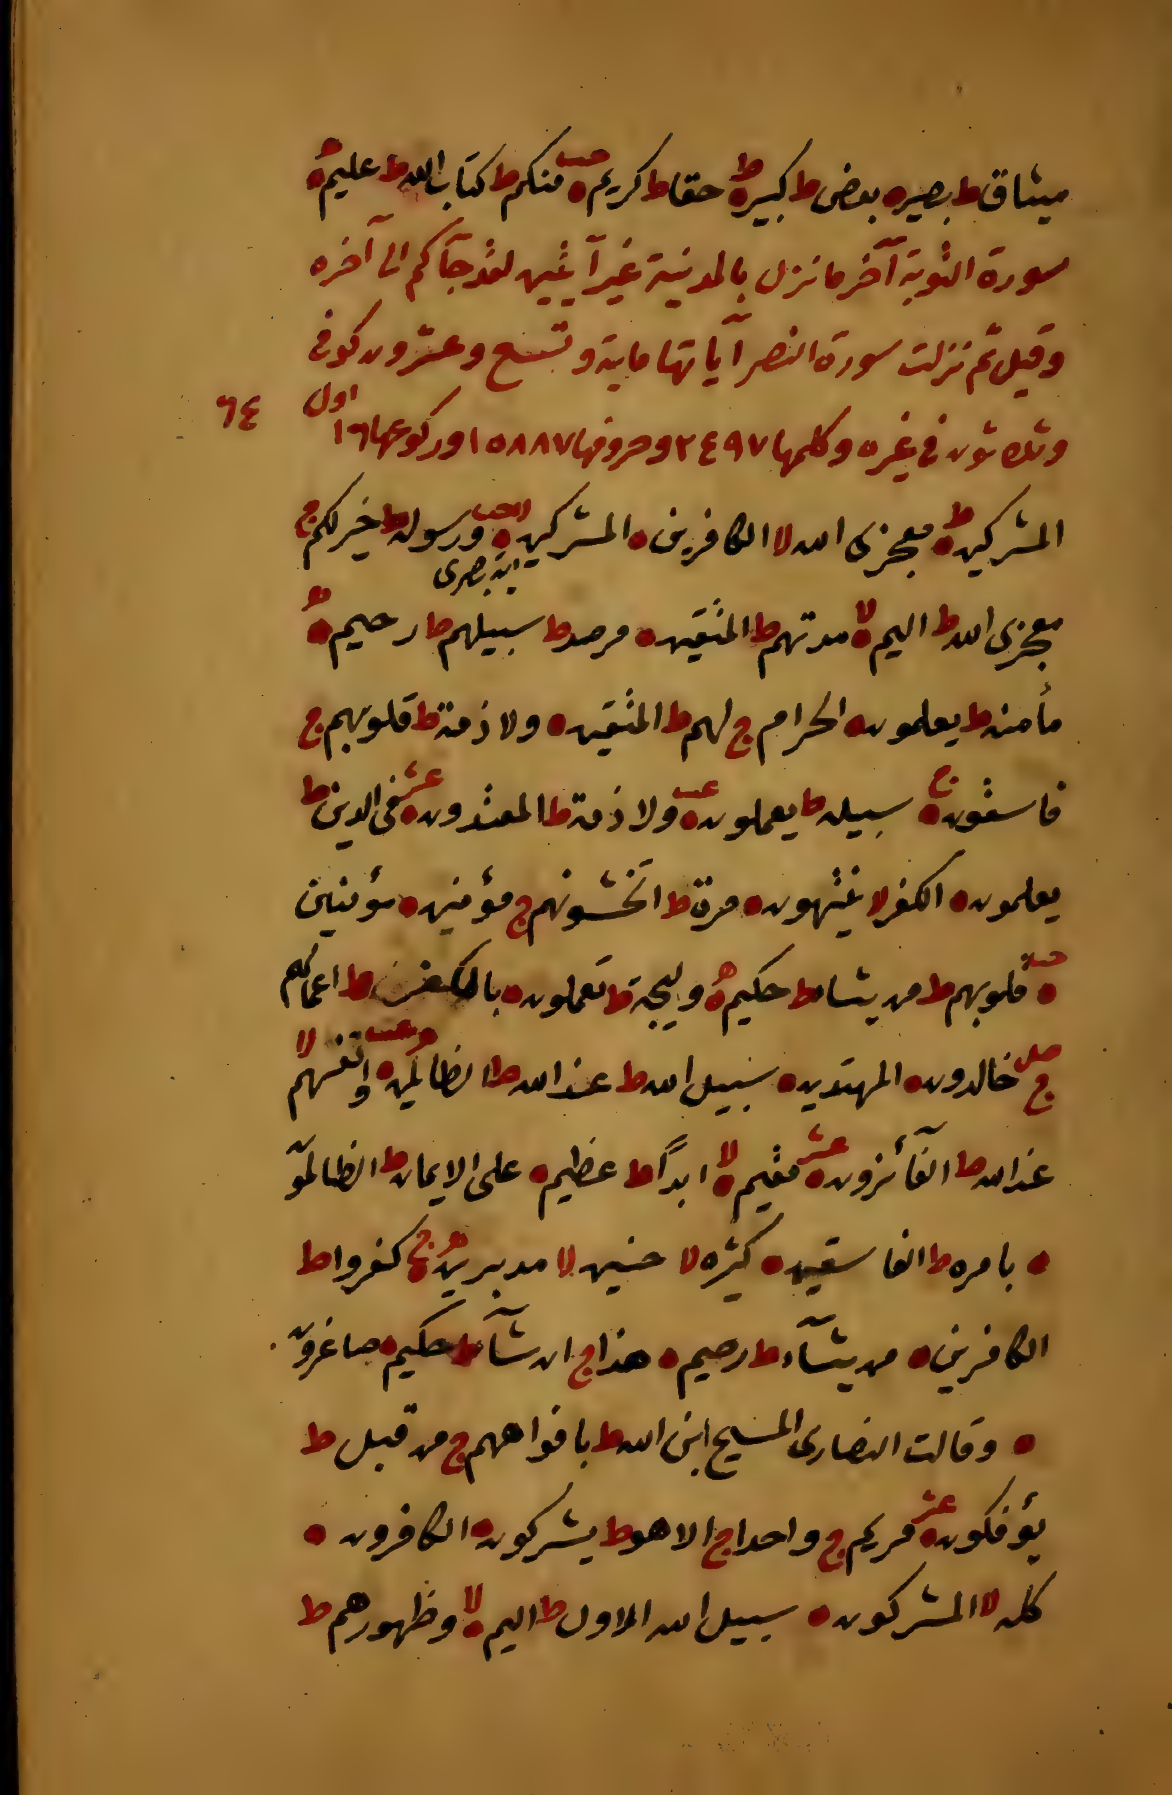 ميثاق ط بصيره بعض ط كبيره ط حقا ط كريم ه منكم ط كتاب الله ط عليم ه
سورة التوبة آخر ما نزل بالمدينة غير آيتين لقد جآكم الى آخره
وقيل ثم نزلت سورة النصر آياتها ماية وتسع وعشرون كوفي
وثلاثون في غيره وكلمها ٢٤٩٧ وحروفها ١٥٨٨٧ وركوعها ١٦ اول ٦٤
المشركين ه ط معجزى الله لا الكافرين ه المشركين ه ورسوله ط خير لكم ج
اية بصرى
معجزى الله ط اليم ه لا مدتهم ط المتقين ه مرصد ط سبيلهم ط رحيم ه
مأمنه ط يعلمون ه الحرام ج لهم ط المتقين ه ولا ذمة ط قلوبهم ج
فاسقون ه ج سبيله ط يعملون ه ولا ذمة ط المعتدون ه عشر فى الدين ط
يعلمون ه الكفر لا ينتهون ه مرة ط اتخشونهم ج مؤمنين ه مؤمنين
ه قلوبهم ط من يشاء ط حكيم ه وليجة ط تعملون ه بالكفر ط اعمالهم
ج صلى خالدون ه المهتدين ه سبيل الله ط عند الله ط الظالمين ه وانفسهم لا
عند الله ط الفآئزون ه عشر مقيم ه لا ابدًا ط عظيم ه على الايمان ط الظالمون
ه بامره ط الفاسقين ه كثيره لا حنين لا مدبرين ه ج كفروا ط
الكافرين ه من يشآء ط رحيم ه هذا ج ان شآء ط حكيم ه صاغرون
ه وقالت النصارى المسيح ابن الله ط بافواههم ج من قبل ط
يؤفكون ه عشر مريم ج واحدا ج الا هو ط يشركون ه الكافرون ه
كله لا المشركون ه سبيل الله الاول ط اليم ه لا وظهورهم ط